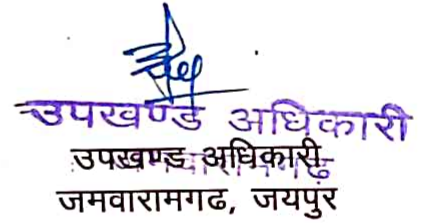 उपखण्ड अधिकारी
उपखण्ड अधिकारी
जमवारामगढ, जयपुर